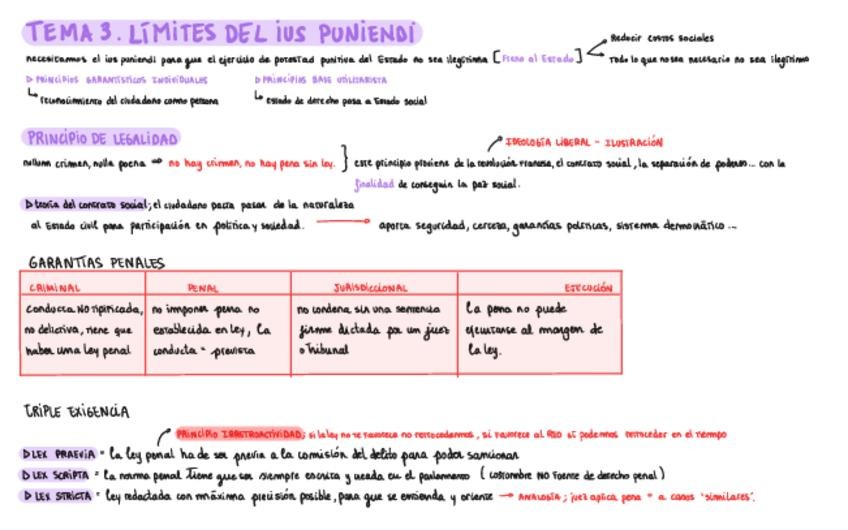 TEMA 3. LÍMITES DEL IUS PUNIENDI
Reducir costos sociales
necesitamos el ius puniendi para que el ejercicio de potestad punitiva del Estado no sea ilegítima [Freno al Estado] Todo lo que no sea necesario no sea ilegítimo
▷ PRINCIPIOS GARANTÍSTICOS INDIVIDUALES ▷ PRINCIPIOS BASE UTILITARISTA
reconocimiento del ciudadano como persona estado de derecho pasa a Estado social
PRINCIPIO DE LEGALIDAD
IDEOLOGÍA LIBERAL - ILUSTRACIÓN
nullum crimen, nulla poena → no hay crimen, no hay pena sin ley. } este principio proviene de la revolución francesa, el contrato social, la separación de poderes... con la
finalidad de conseguir la paz social.
▷ teoría del contrato social; el ciudadano pacta pasar de la naturaleza
al Estado civil para participación en política y sociedad. → aporta seguridad, certeza, garantías políticas, sistema democrático...
GARANTÍAS PENALES
CRIMINAL PENAL JURISDICCIONAL EJECUCIÓN
conducta NO tipificada, no imponer pena no no condena sin una sentencia La pena no puede
no delictiva, tiene que establecida en ley, la firme dictada por un juez ejecutarse al margen de
haber una ley penal conducta = prevista o Tribunal la ley.
TRIPLE EXIGENCIA
PRINCIPIO IRRETROACTIVIDAD; si la ley no te favorece no retrocedemos, si favorece al REO sí podemos retroceder en el tiempo
▷ LEX PRAEVIA = la ley penal ha de ser previa a la comisión del delito para poder sancionar
▷ LEX SCRIPTA = la norma penal tiene que ser siempre escrita y creada en el parlamento (costumbre NO fuente de derecho penal)
▷ LEX STRICTA = ley redactada con máxima precisión posible, para que se entienda y oriente → ANALOGÍA; juez aplica pena = a casos 'similares'.